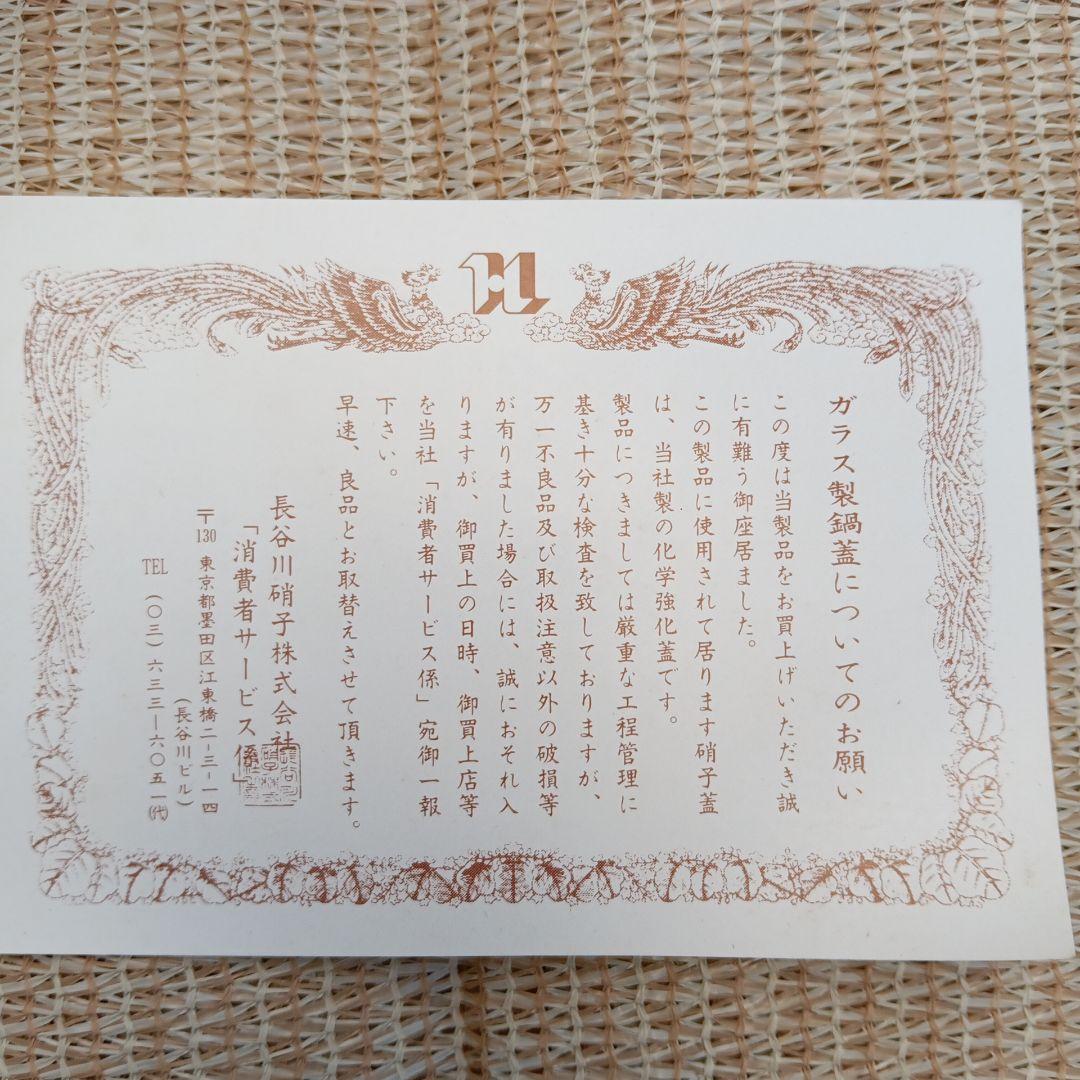 ガラス製鍋蓋についてのお願い
この度は当製品をお買上げいただき誠
に有難う御座居ました。
この製品に使用されて居ります硝子蓋
は、当社製の化学強化蓋です。
製品につきましては厳重な工程管理に
基き十分な検査を致しておりますが、
万一不良品及び取扱注意以外の破損等
が有りました場合には、誠におそれ入
りますが、御買上の日時、御買上店等
を当社「消費者サービス係」宛御一報
下さい。
早速、良品とお取替えさせて頂きます。
長谷川硝子株式会社
「消費者サービス係」
〒130 東京都墨田区江東橋二−三−一四
(長谷川ビル)
TEL (〇三)六三三−六〇五一㈹